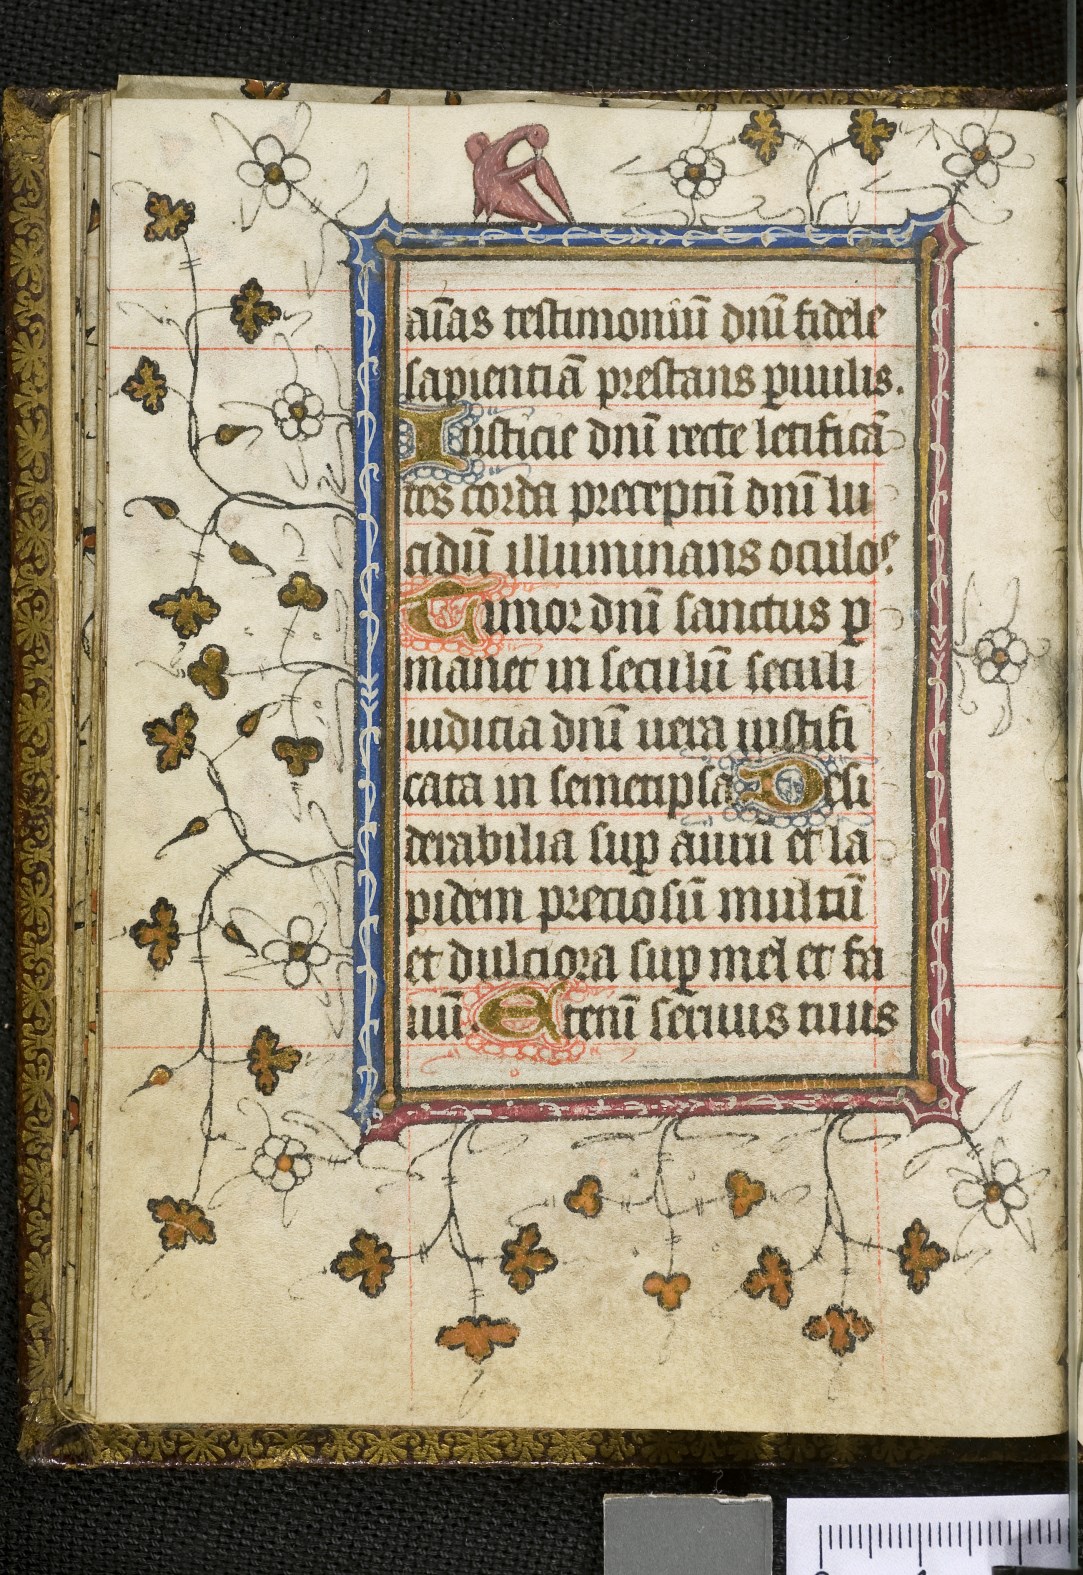 aīas testimoniū dnī fidele
sapientiā prestans ꝑuulis.
Iusticie dnī recte letificā
tes corda preceptū dnī lu
cidū illuminans oculos.
Timor dnī sanctus ꝑ
manet in seculū seculi
iudicia dnī uera iustifi
cata in semetipsa Desi
derabilia suꝑ aurū et la
pidem preciosū multū
et dulciora suꝑ mel et fa
uū. Etenī seruus tuus